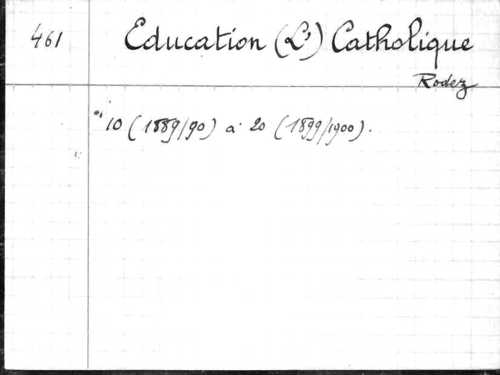 461 Education (L') Catholique
Rodez
10 (1889/90) à 20 (1899/1900).